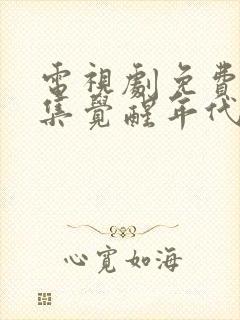 電視劇免費
集覺醒年代
心寬如海